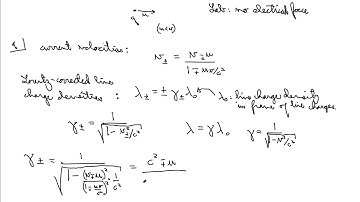 q u
(u<v)
Lab: no electrical force
current velocities: v± = (v∓u)/(1∓uv/c²)
Lorentz-corrected line charge densities: λ± = ± γ± λ₀ λ₀: line charge density in frame of line charges
γ± = 1/√(1-v±²/c²) λ = γλ₀ γ = 1/√(1-v²/c²)
γ± = 1/√(1-(v∓u)²/(1∓uv/c²)²·1/c²) = c²∓u